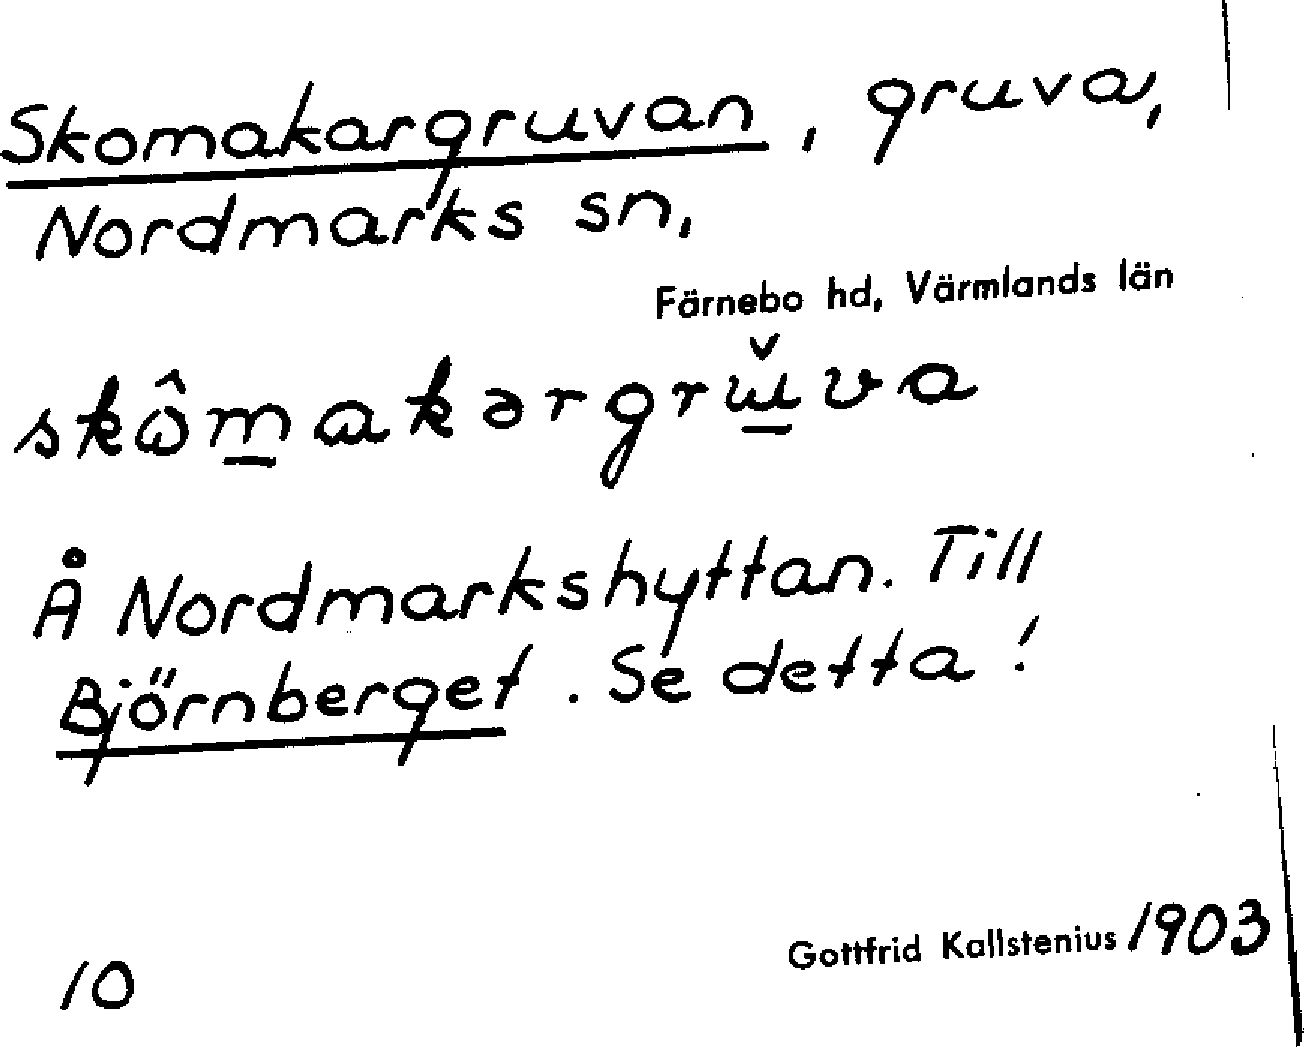 Skomakargruvan, gruva,
Nordmarks sn,
Färnebo hd, Värmlands län
skômakərgrŭva
Å Nordmarkshyttan. Till
Björnberget. Se detta!
Gottfrid Kallstenius 1903
10